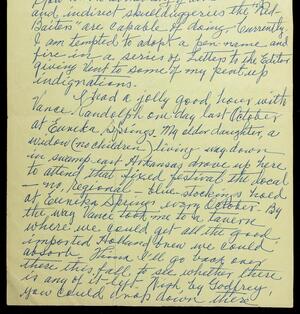 and indirect skulduggeries the "Red
Baiters" are capable of doing currently.
I am tempted to adopt a pen-name and
fire-in a series of Letters to the Editor
giving vent to some of my pent-up
indignations.
I had a jolly good hour with
Vance Randolph one day last October
at Eureka Springs. My older daughter, a
widow (no children) living way down
in swamp-east Arkansas drove up here
to attend that fixed festival the local
— no, Regional — blue-stockings hold
at Eureka Springs every October. By
the way Vance took me to a tavern
where we could get all the good
imported Holland brew we could
absorb. Think I'll go back over
there this fall, to see whether there
is any of it left. Nigh, by Godfrey,
you could drop down there